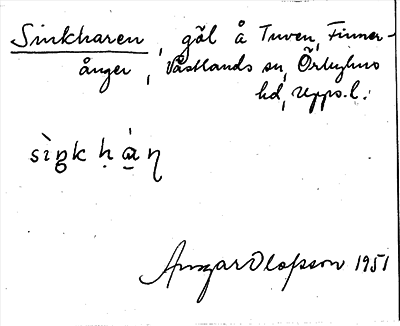 Sinkharen, göl å Tuven, Finner-
ånger, Västlands sn, Örbyhus
hd, Upps. l.
sìŋk ḥ á̱ η
Ansgar Olofsson 1951